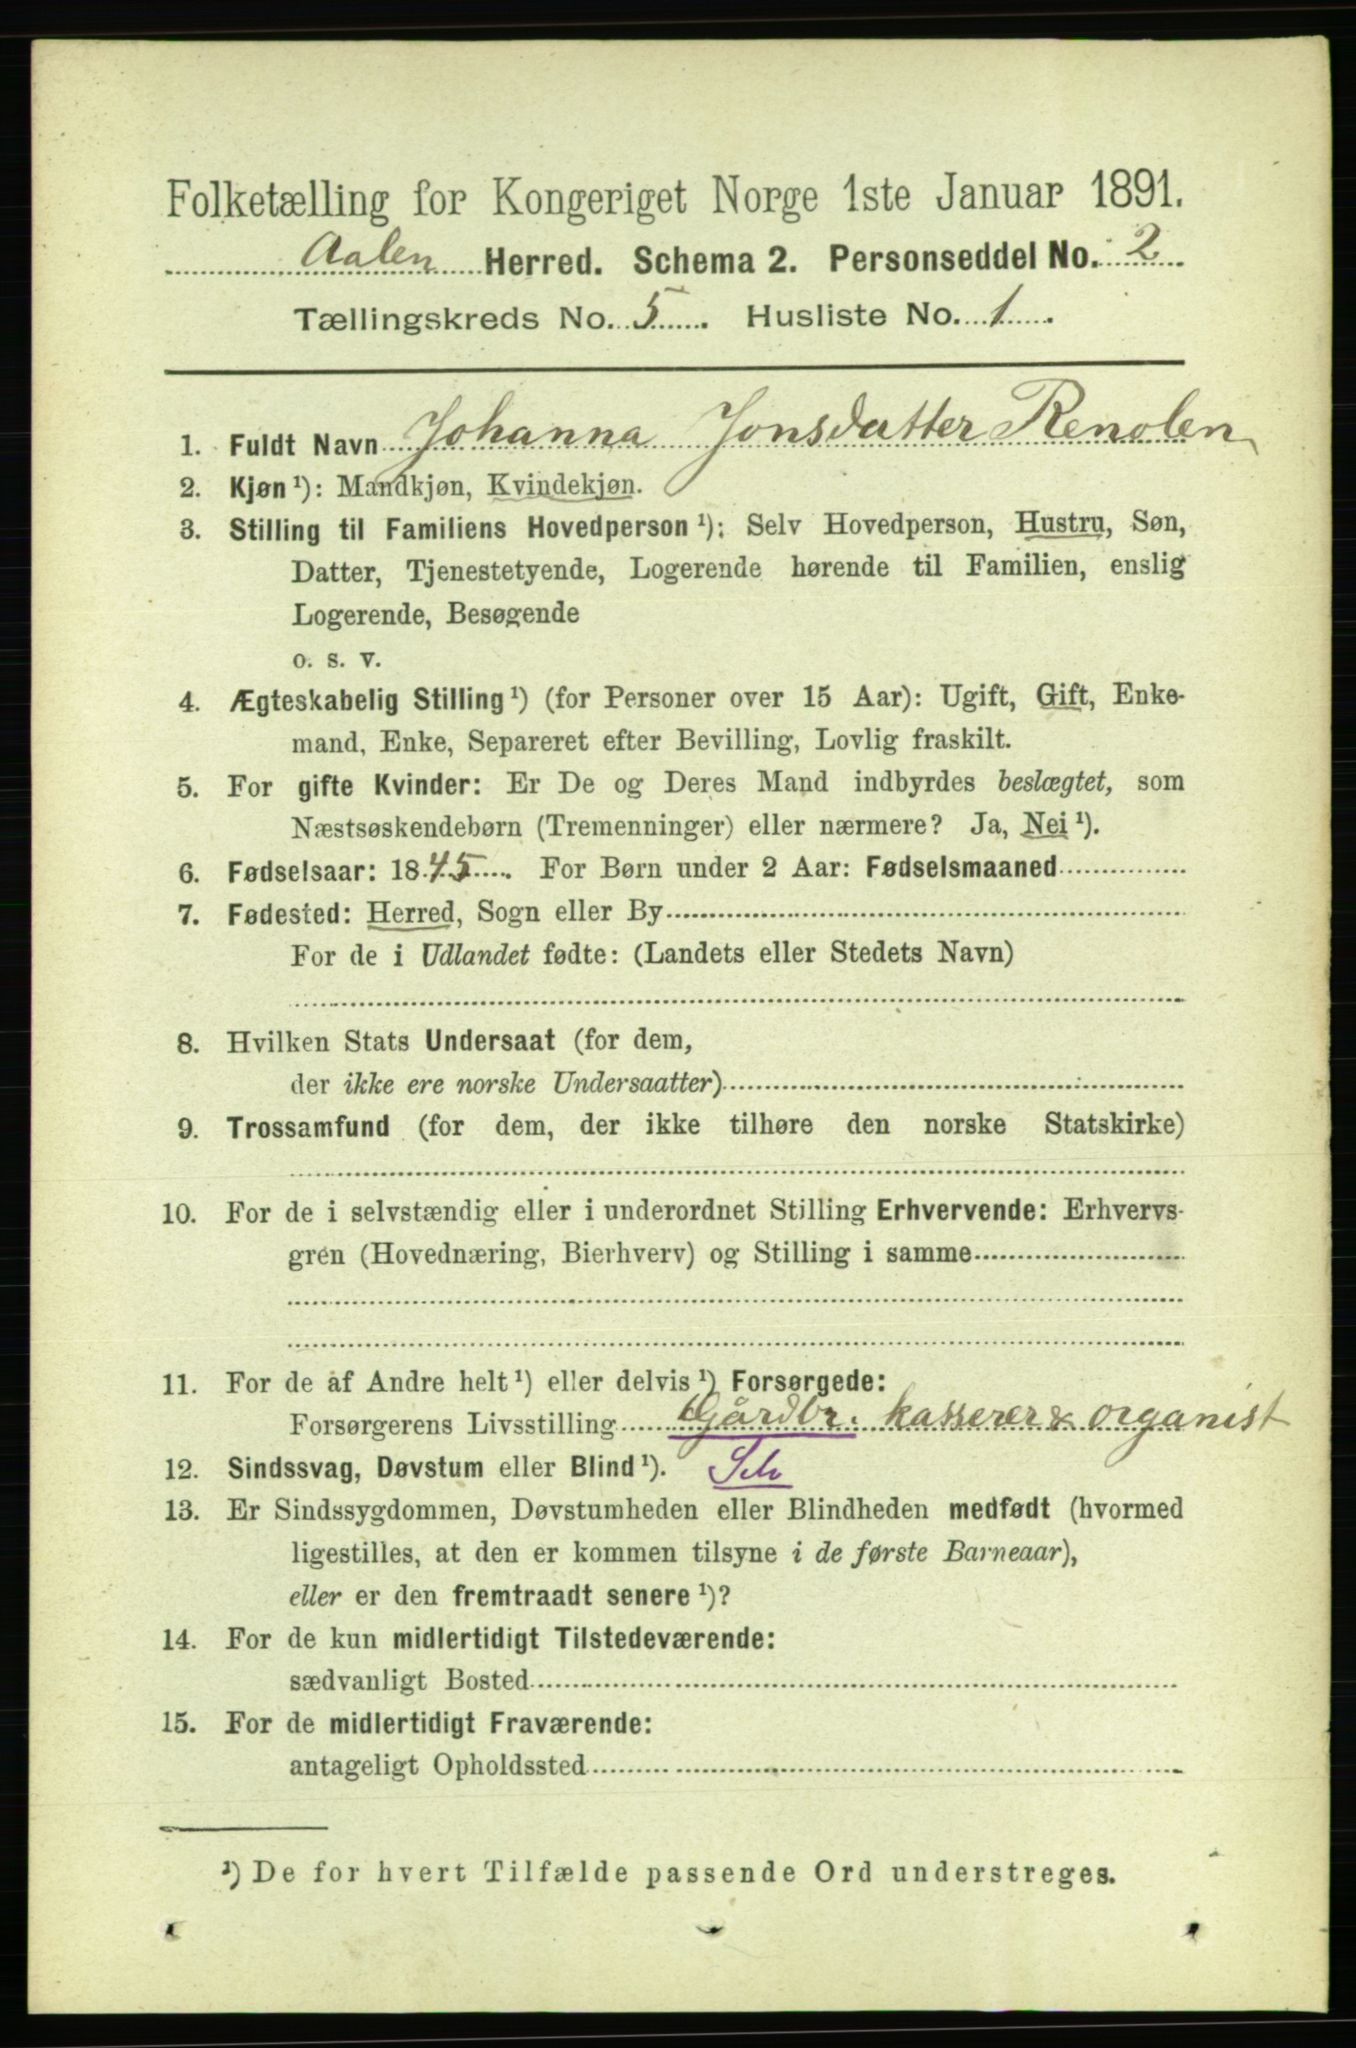 Folketælling for Kongeriget Norge 1ste Januar 1891.
Aalen Herred. Schema 2. Personseddel No. 2
Tællingskreds No. 5. Husliste No. 1.
1. Fuldt Navn Johanna Jonsdatter Renolen
2. Kjøn ¹): Mandkjøn, Kvindekjøn.
3. Stilling til Familiens Hovedperson ¹): Selv Hovedperson, Hustru, Søn,
Datter, Tjenestetyende, Logerende hørende til Familien, enslig
Logerende, Besøgende
o. s. v.
4. Ægteskabelig Stilling ¹) (for Personer over 15 Aar): Ugift, Gift, Enke-
mand, Enke, Separeret efter Bevilling, Lovlig fraskilt.
5. For gifte Kvinder: Er De og Deres Mand indbyrdes beslægtet, som
Næstsøskendebørn (Tremenninger) eller nærmere? Ja, Nei ¹).
6. Fødselsaar: 1845. For Børn under 2 Aar: Fødselsmaaned
7. Fødested: Herred, Sogn eller By
For de i Udlandet fødte: (Landets eller Stedets Navn)
8. Hvilken Stats Undersaat (for dem,
der ikke ere norske Undersaatter)
9. Trossamfund (for dem, der ikke tilhøre den norske Statskirke)
10. For de i selvstændig eller i underordnet Stilling Erhvervende: Erhvervs-
gren (Hovednæring, Bierhverv) og Stilling i samme
11. For de af Andre helt ¹) eller delvis ¹) Forsørgede:
Forsørgerens Livsstilling Gårdbr. kasserer & organist
12. Sindssvag, Døvstum eller Blind ¹). Selv
13. Er Sindssygdommen, Døvstumheden eller Blindheden medfødt (hvormed
ligestilles, at den er kommen tilsyne i de første Barneaar),
eller er den fremtraadt senere ¹)?
14. For de kun midlertidigt Tilstedeværende:
sædvanligt Bosted
15. For de midlertidigt Fraværende:
antageligt Opholdssted
¹) De for hvert Tilfælde passende Ord understreges.